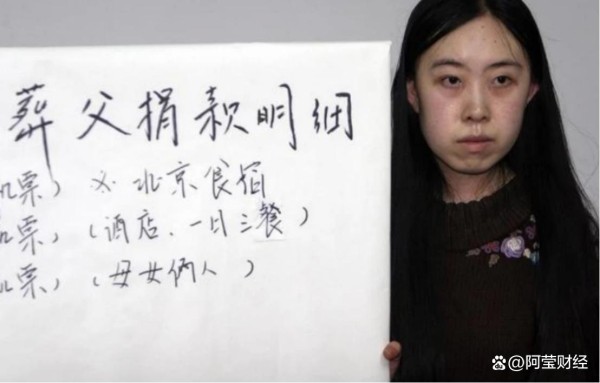 葬父捐款明細
机票）※北京食宿
票）（酒店、一日三餐）
机票）（母女俩人）
阿莹财经